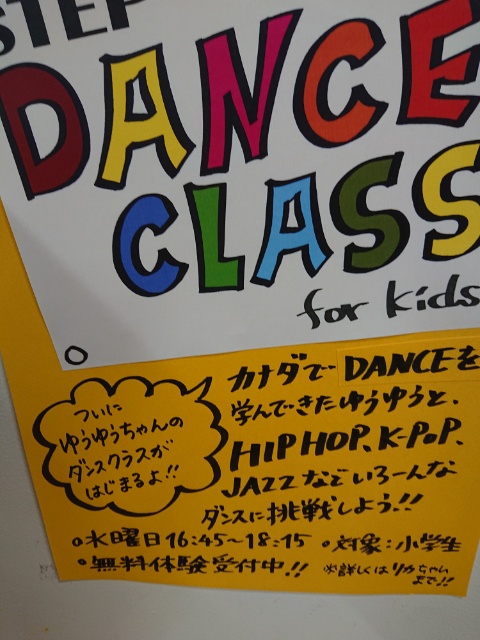 STEP
DANCE
CLASS
for kids
カナダで DANCEを
学んできたゆうゆうと、
HIP HOP、K-POP、
JAZZなどいろーんな
ダンスに挑戦しよう!!
ついに
ゆうゆうちゃんの
ダンスクラスが
はじまるよ!!
○水曜日16:45~18:15 ○対象:小学生
○無料体験受付中!! ※詳しくはリカちゃん
まで!!